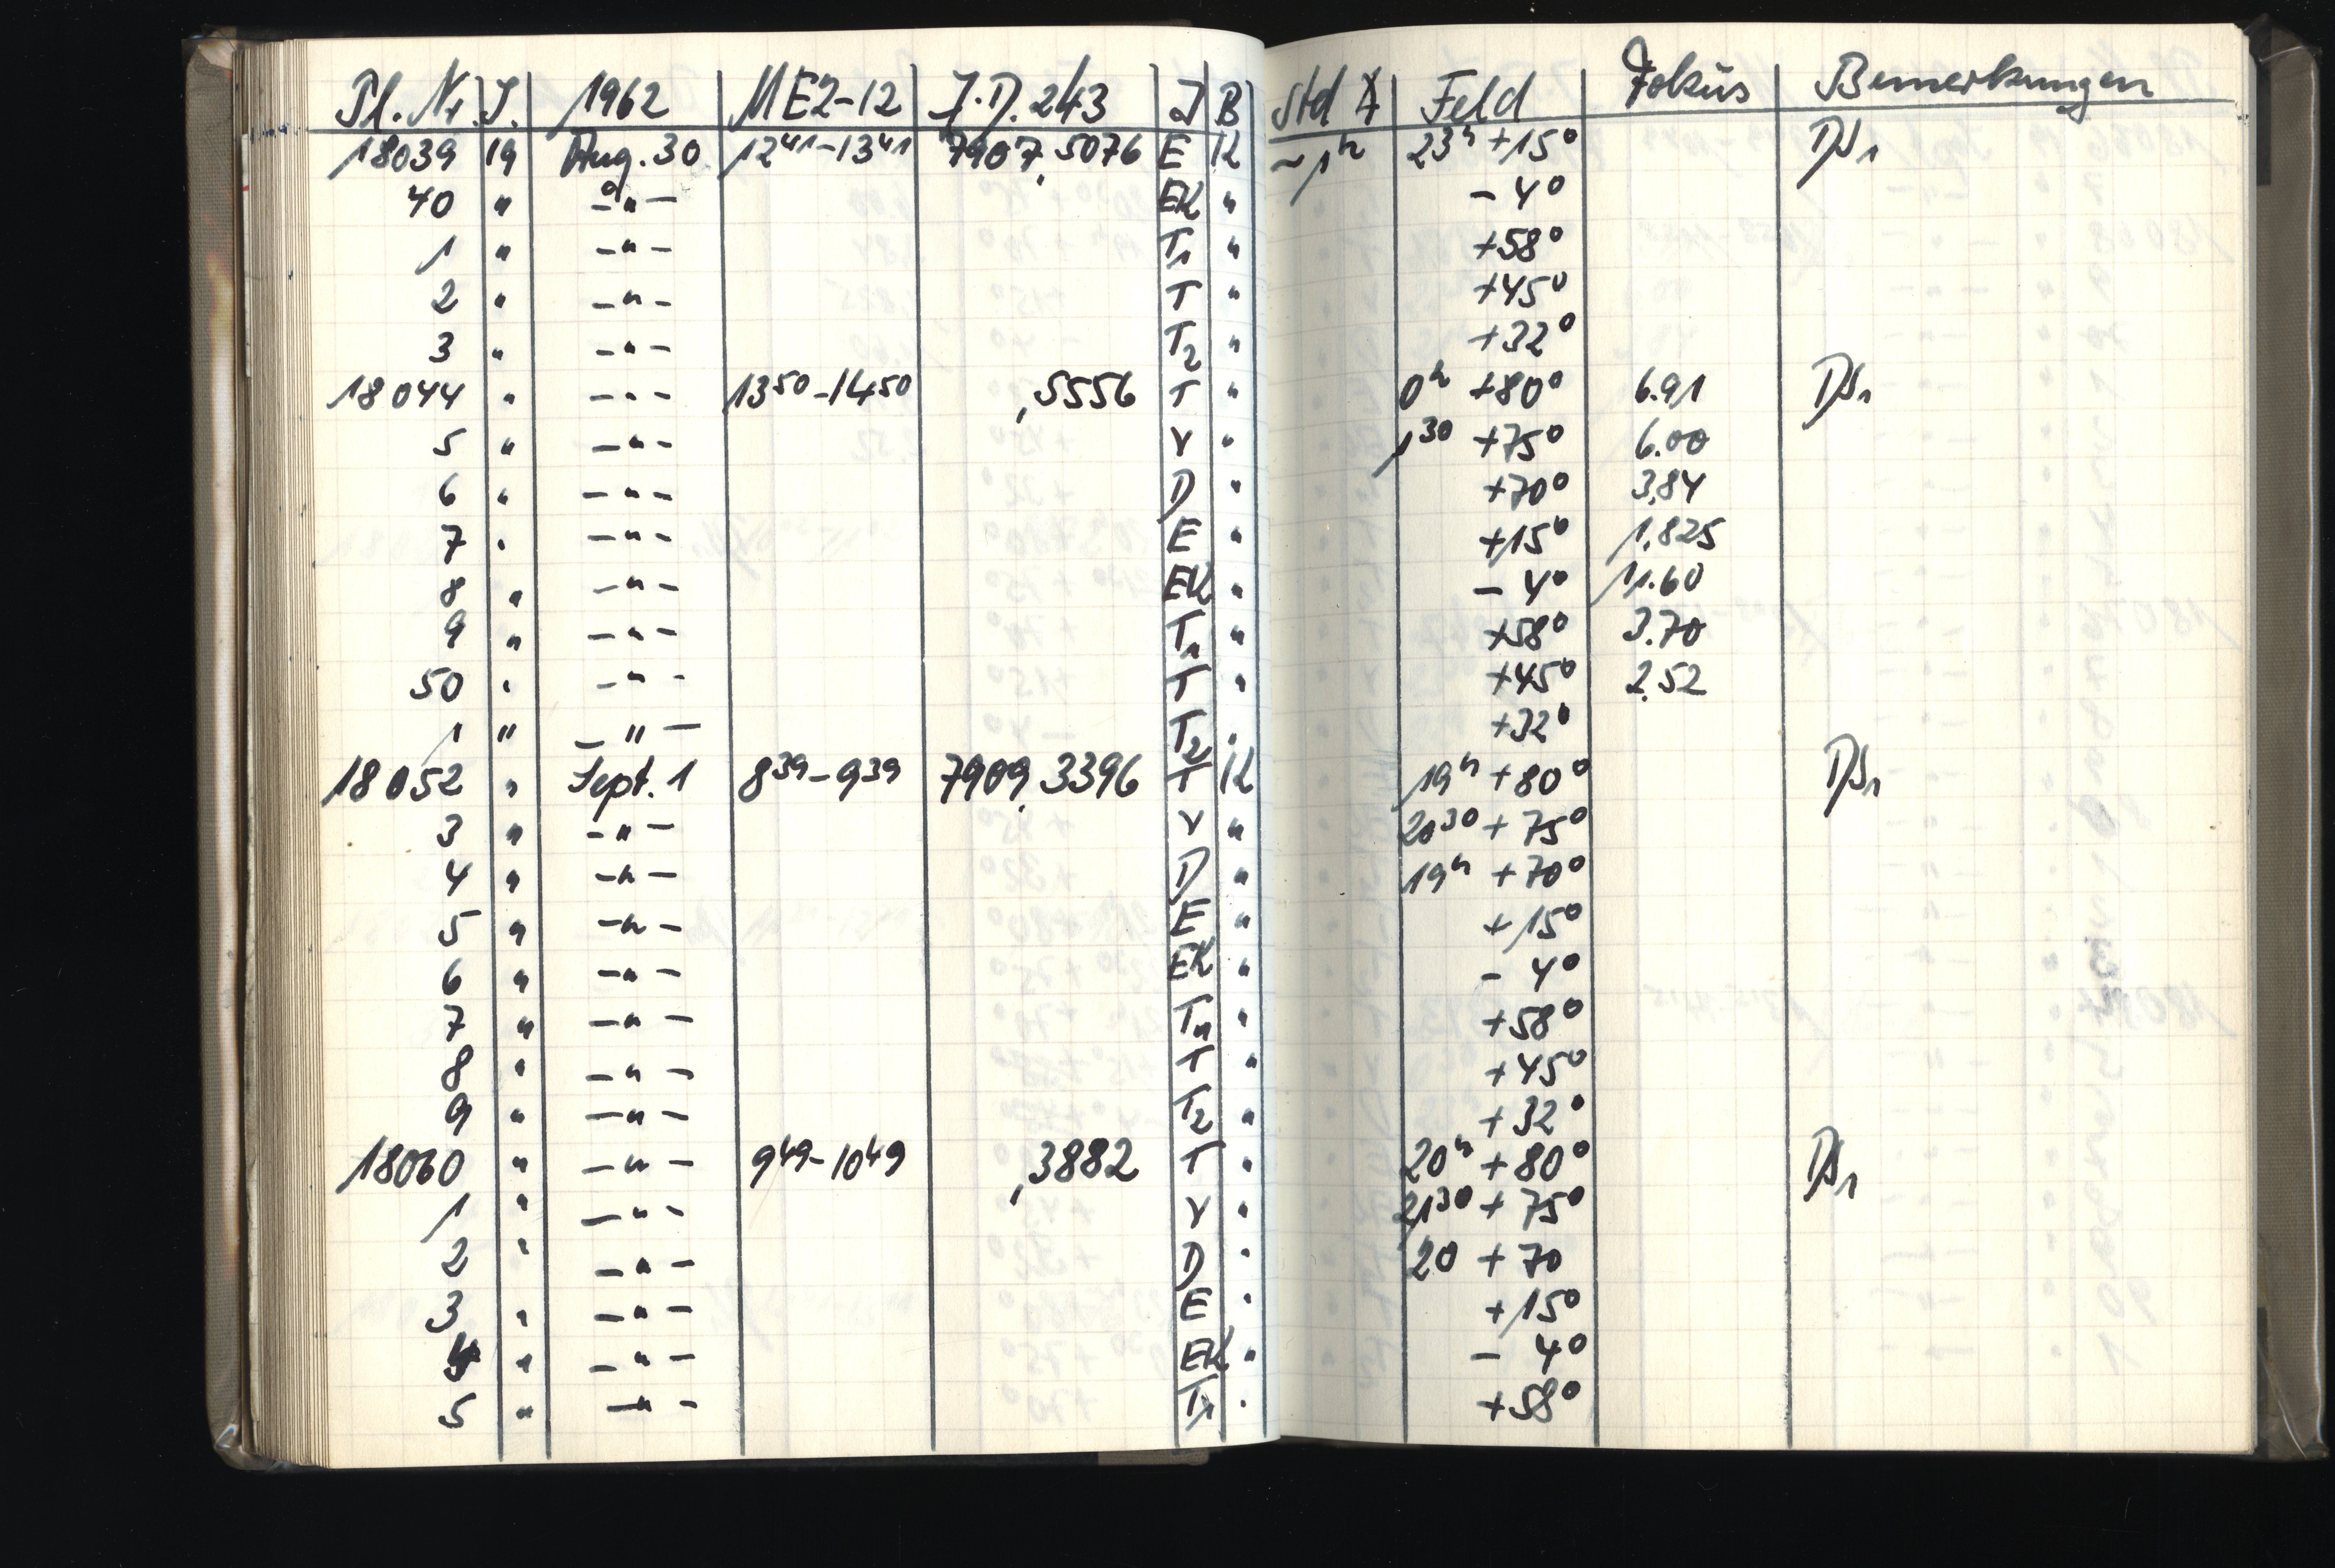 Pl. Nr. S. 1962 MEZ-12 J.D. 243 J B Std A Feld Fokus Bemerkungen
18039 19 Aug. 30 12⁴¹-13⁴¹ 7907,5076 E K ~1ʰ 23ʰ +15° DS₁
40 " -"- EK " - 4°
1 " -"- T₁ " +58°
2 " -"- T " +45°
3 " -"- T₂ " +32°
18044 " -"- 13⁵⁰-14⁵⁰ ,5556 T " 0ʰ +80° 6.91 DS₁
5 " -"- V " 1³⁰ +75° 6.00
6 " -"- D " +70° 3,84
7 " -"- E " +15° 1,825
8 " -"- EK " - 4° 11.60
9 " -"- T₁ " +58° 3.70
50 " -"- T " +45° 2,52
1 " -"- T₂ " +32°
18052 " Sept. 1 8³⁹-9³⁹ 7909,3396 T K 19ʰ +80° DS₁
3 " -"- V " 20³⁰ +75°
4 " -"- D " 19ʰ +70°
5 " -"- E " +15°
6 " -"- EK " - 4°
7 " -"- T₁ " +58°
8 " -"- T " +45°
9 " -"- T₂ " +32°
18060 " -"- 9⁴⁹-10⁴⁹ ,3882 T " 20ʰ +80° DS₁
1 " -"- V " 21³⁰ +75°
2 " -"- D " 20 +70
3 " -"- E " +15°
4 " -"- EK " - 4°
5 " -"- T₁ " +58°